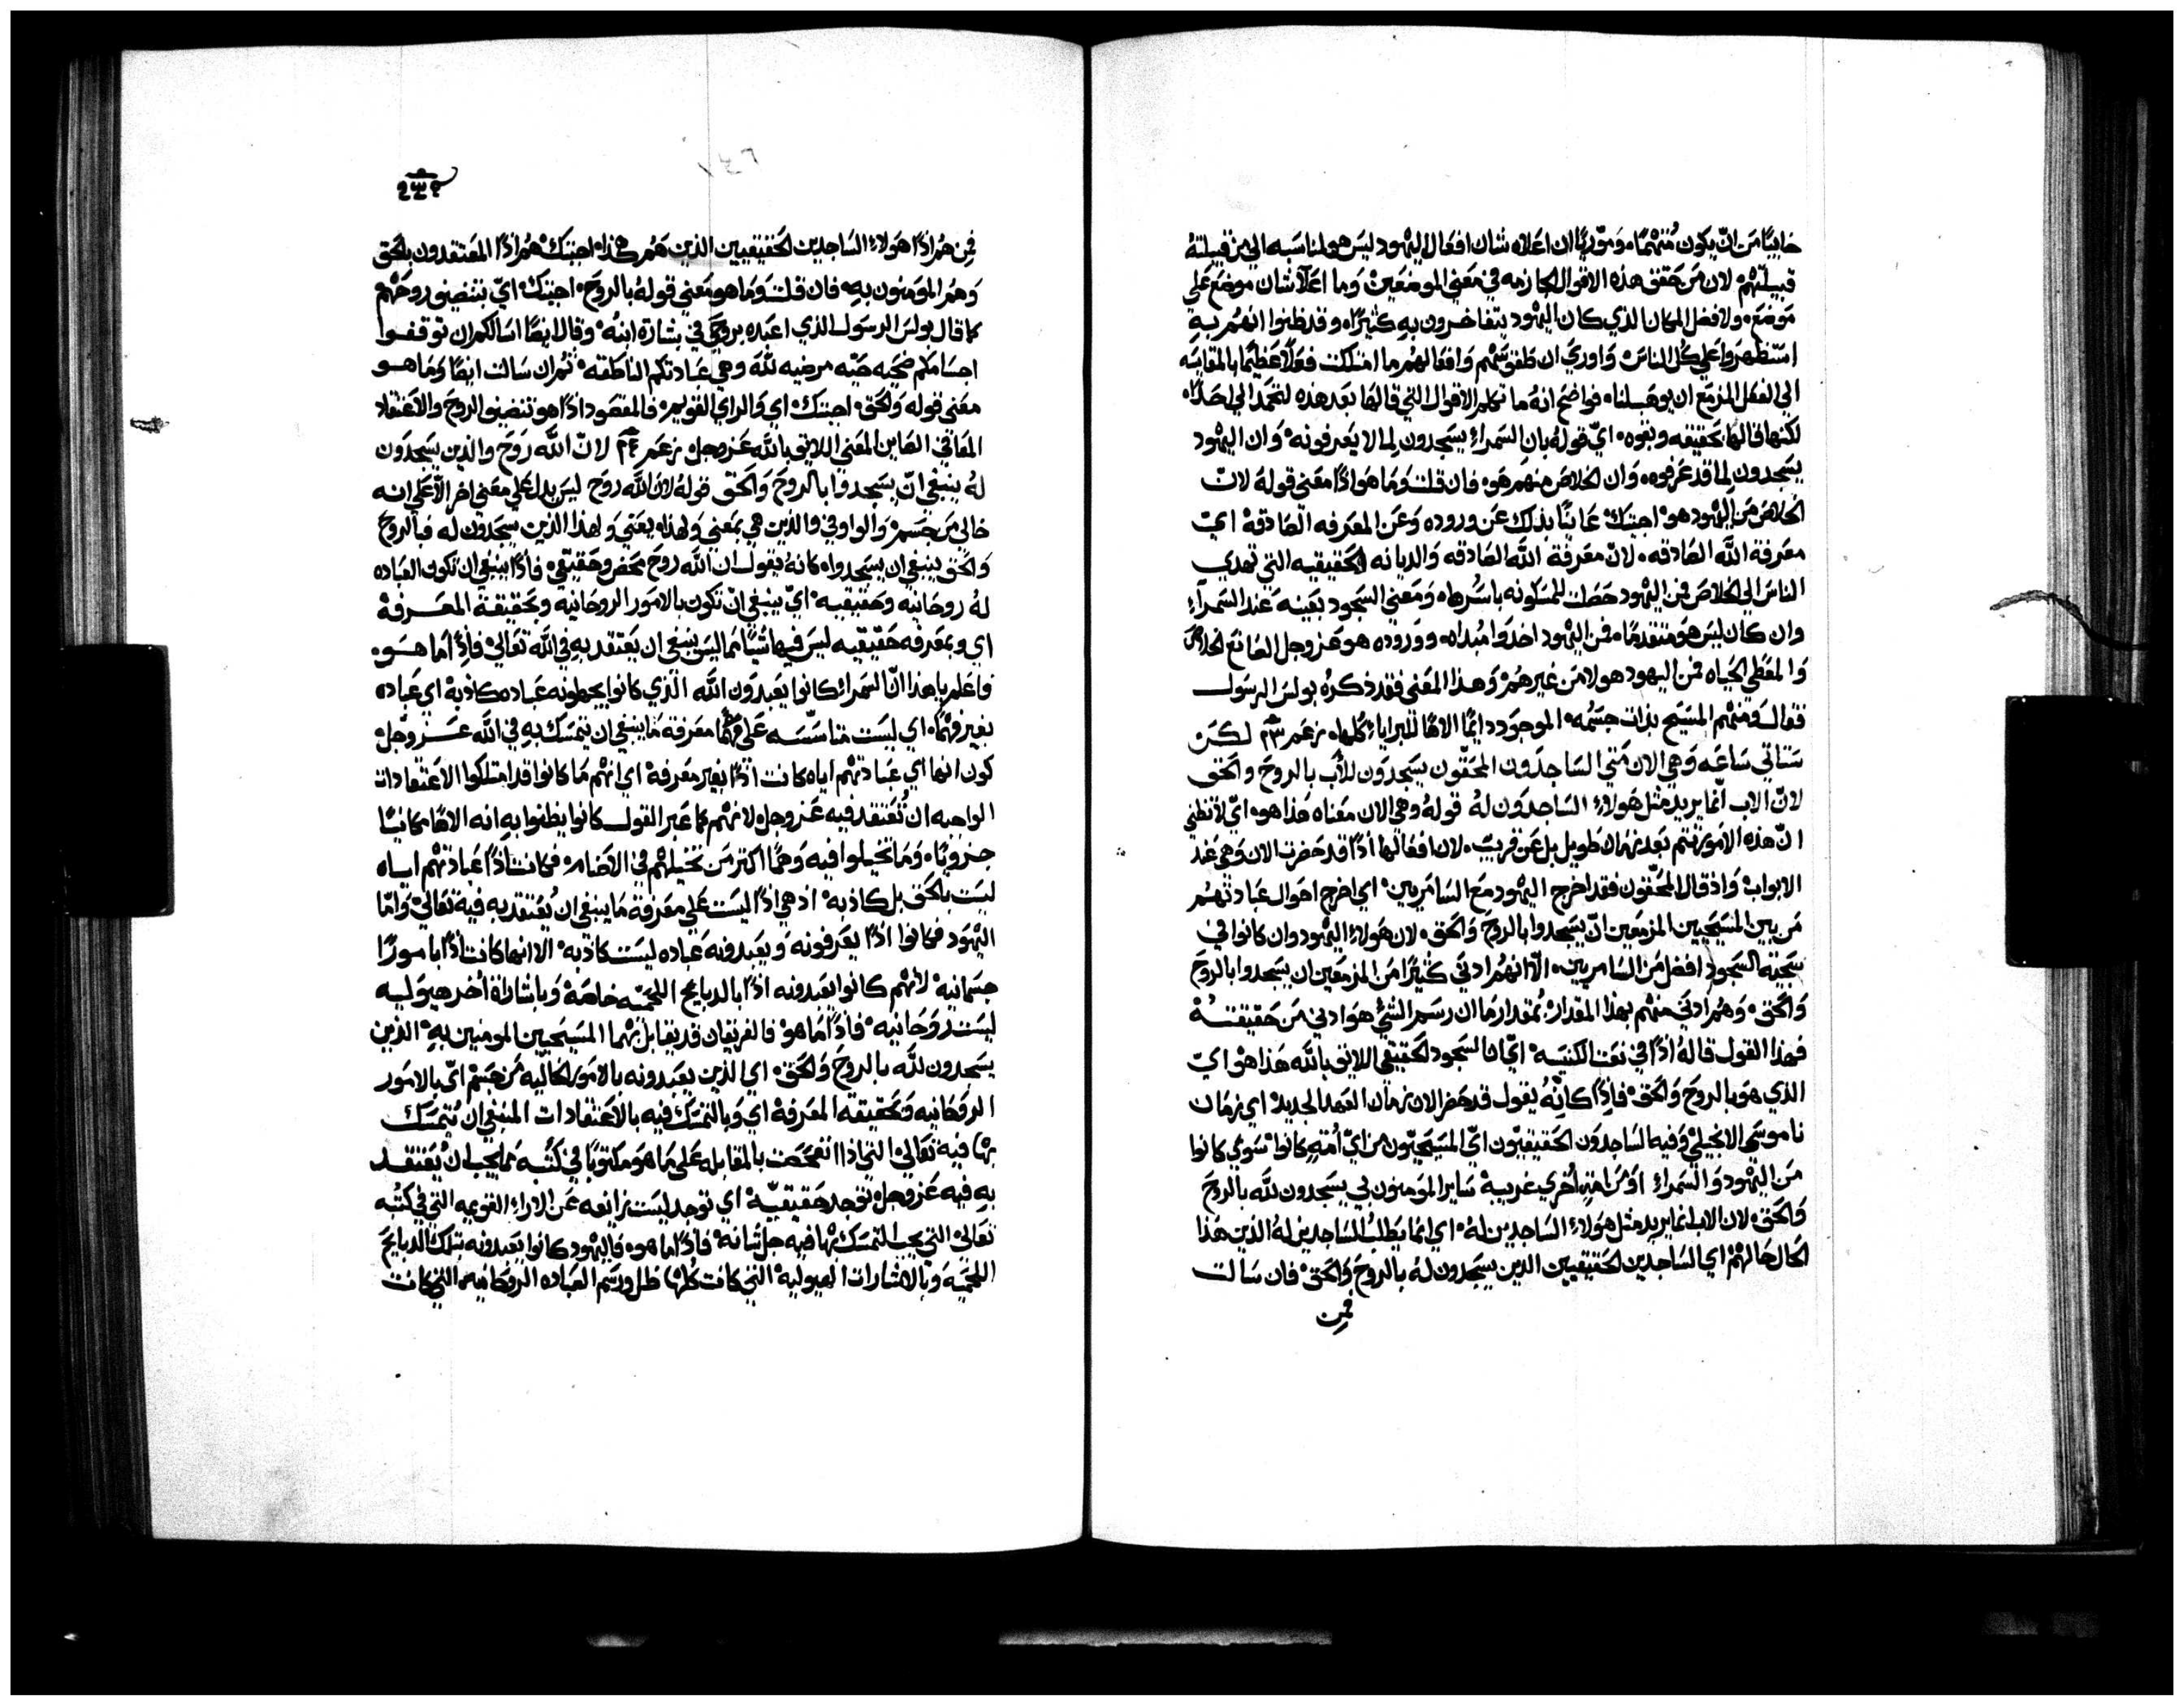 خايبًا من ان يكون متهمًا، وموريًا ان اعلاه شان افعال اليهود ليس هو لمناسبه الي من قبيلته
قبيلتهم لان من حقق هذه الاقوال الجازمه في معني الموضعين وما اعلا شان موضع علي
موضع، ولا فضل المكان الذي كان اليهود يتفاخرون به كثيرًا، وقد ظنوا انهم به
استظهروا علي كل الناس، واوري ان طقوسهم وافعالهم ما امتلكت فعلًا عظيمًا بالمقايسه
الي الفعل المزمع ان يوهب لنا، فواضح انه ما تكلم الاقوال التي قالها بعد هذه لتحمد الي احد
لكنها قالها بحقيقه وبقوه، اي قوله بان السمراء يسجدون لما لا يعرفونه، وان اليهود
يسجدون لما قد عرفوه، وان الخلاص منهم هو، فان قلت وما هو اذًا معني قوله لان
الخلاص من اليهود هو، اجبتك عانيًا بذلك عن وروده وعن المعرفه الصادقه اي
معرفة الله الصادقه، لان معرفة الله الصادقه والديانه الحقيقيه التي تهدي
الناس الي الخلاص فمن اليهود حصلت للمسكونه باسرها، ومعني السجود بعينه عند السمراء
وان كان ليس هو متقدمًا، فمن اليهود اخذوا مبداه، ووروده هو عز وجل الصانع الخلاص
والمعطي الحياه فمن اليهود هو لا من غيرهم، وهذا المعني فقد ذكره بولس الرسول
فقال ومنهم المسيح بذات جسمه، الموجود دايمًا الاهًا للبرايا كلها، زعم ٢٣ لكن
ستاتي ساعه وهي الان متي الساجدون المحقون يسجدون للاب بالروح والحق
لان الاب انما يريد مثل هولاء الساجدون له قوله وهي الان معناه هذا هو، اي لا تظني
ان هذه الامور تتم بعد زمان طويل بل عن قريب، لان افعالها اذًا قد حضرت الان وهي عند
الابواب، واذ قال المحقون فقد اخرج اليهود مع السامريين، اي اخرج احوال عبادتهم
من بين المسيحيين المزمعين ان يسجدوا بالروح والحق، لان هولاء اليهود وان كانوا في
سجية السجود افضل من السامريين، الا انهم ادني كثيرًا من المزمعين ان يسجدوا بالروح
والحق، وهم ادني منهم بهذا المقدار، بمقدار ما ان رسم الشي هو ادني من حقيقته
فهذا القول قاله اذًا في نعت الكنيسه، اي ان السجود الحقيقي اللايق بالله هذا هو اي
الذي هو بالروح والحق، فاذًا كانه يقول قد حضر الان زمان العهد الجديد، اي زمان
ناموسي الانجيلي وفيه الساجدون الحقيقيون اي المسيحيون من اي امه كانوا، سوي كانوا
من اليهود والسمراء او من امه اخري غريبه، ساير المومنون بي يسجدون لله بالروح
والحق، لان الاب انما يريد مثل هولاء الساجدين له، اي انما يطلب للساجدين له الذين هذا
الحال حالهم، اي الساجدين الحقيقيين الذين يسجدون له بالروح والحق، فان سالت
فمن
١٤٦
فمن هم اذًا هولاء الساجدين الحقيقيين الذين هم هكذا، اجبتك، هم اذًا المعتقدون بالحق
وهم المومنون به، فان قلت وما هو معني قوله بالروح، اجبتك، اي بتنصيو روحهم
كما قال بولس الرسول الذي اعبده بروحي في بشارة ابنه، وقال ايضًا اسالكم ان توقفوا
اجسامكم ضحيه حيه مرضيه لله وهي عبادتكم الناطقه، ثم ان سالت ايضًا وما هو
معني قوله والحق، اجبتك، اي والراي القويم، فالمقصود اذًا هو تنضيو الروح والاعتقاد
المعاقي الصاين المعني اللايق بالله عز وجل، زعم ٢٤ لان الله روح والذين يسجدون
له ينبغي ان يسجدوا بالروح والحق قوله لان الله روح ليس يدل علي معني اخر الا علي انه
خالي من جسم، والواو في والذين هي بمعني ولهذا، يعني ولهذا الذين يسجدون له فبالروح
والحق ينبغي ان يسجدوا، كانه يقول ان الله روح محض وحقيقي، فاذًا ينبغي ان تكون العباده
له روحانيه وحقيقيه، اي ينبغي ان تكون بالامور الروحانيه وبحقيقة المعرفه
اي وبمعرفه حقيقيه ليس فيها شيًا مما ليس ينبغي ان يعتقد به في الله تعالي، فاذًا اما هو،
فاعلم يا هذا ان السمرا كانوا يعبدون الله الذي كانوا يجهلونه عباده كاذبه، اي عباده
بغير فهم، اي ليست متاسسه علي معرفة ما ينبغي ان يتمسك به في الله عز وجل،
كون انها اي عبادتهم اياه كانت اذًا بغير معرفه، اي انهم ما كانوا قد امتلكوا الاعتقادات
الواجبه ان تعتقد فيه عز وجل، لانهم كما عبر القول كانوا يظنوا به انه الاهًا مكانيًا
جزويًا، وما تخيلوا فيه وهمًا اكثر من تخيلهم في الاصنام، فكانت اذًا عبادتهم اياه
ليست بالحق بل كاذبه، اذ هي اذًا ليست علي معرفة ما ينبغي ان يعتقد به فيه تعالي، واما
اليهود فكانوا اذًا يعرفونه ويعبدونه عباده ليست كاذبه، الا انها كانت اذًا بامورًا
جسمانيه، لانهم كانوا يعبدونه اذًا بالدبايح اللحميه خاصه، وباشاراة اخر هيوليه
ليست روحانيه، فاذًا اما هو، فالفريقان قد يقابل بهما المسيحيين المومنين به، الذين
يسجدون لله بالروح والحق، اي الذين يعبدونه بالامور الخاليه من جسم اي بالامور
الروحانيه وبحقيقة المعرفه، اي وبالتمسك فيه بالاعتقادات المنبغي ان يتمسك
بها فيه تعالي، التي اذا انفحصت بالمقابله علي ما هو مكتوبًا في كتبه مما يجب ان يعتقد
به فيه عز وجل، توجد حقيقيه، اي توجد ليست زايغه عن الاراء القويمه التي في كتبه
تعالي، التي يجب التمسك بها فيه جل شانه، فاذًا اما هو، فاليهود كانوا يعبدونه بتلك الدبايح
اللحميه وبالاشارات الهيوليه، التي كانت كلها ظل ورسم العباده الروحانيه، التي كانت